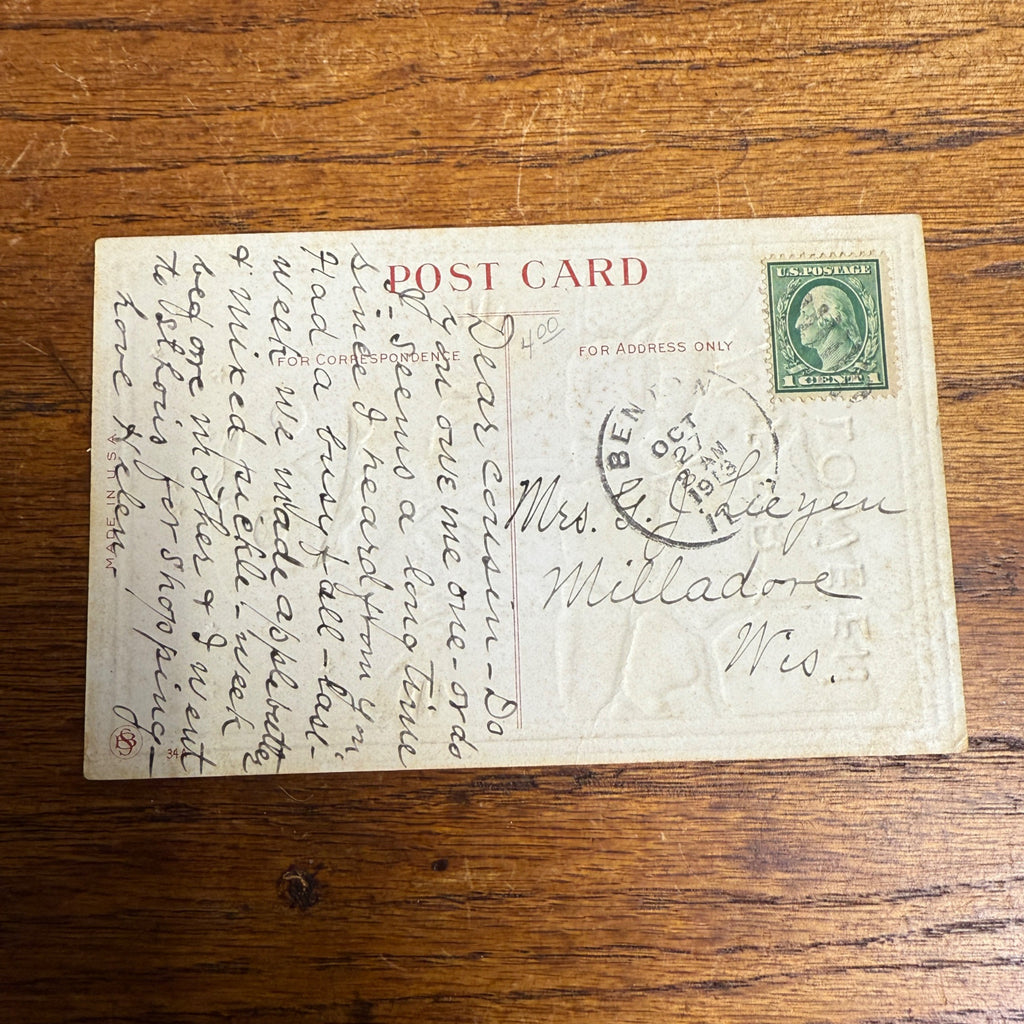 POST CARD
FOR CORRESPONDENCE
FOR ADDRESS ONLY
U.S. POSTAGE
1 CENT 1
4 00
OCT
27
8 AM
1913
Dear Cousin - Do
you owe me one - or do
I - Seems a long time
since I heard from you.
Had a busy fall - last
week we made applebutter
& mixed pickle - week
before Mother & I went
to St Louis for shopping -
Love Helen
Mrs. G. J. Lieyen
Milladore
Wis.
MADE IN USA